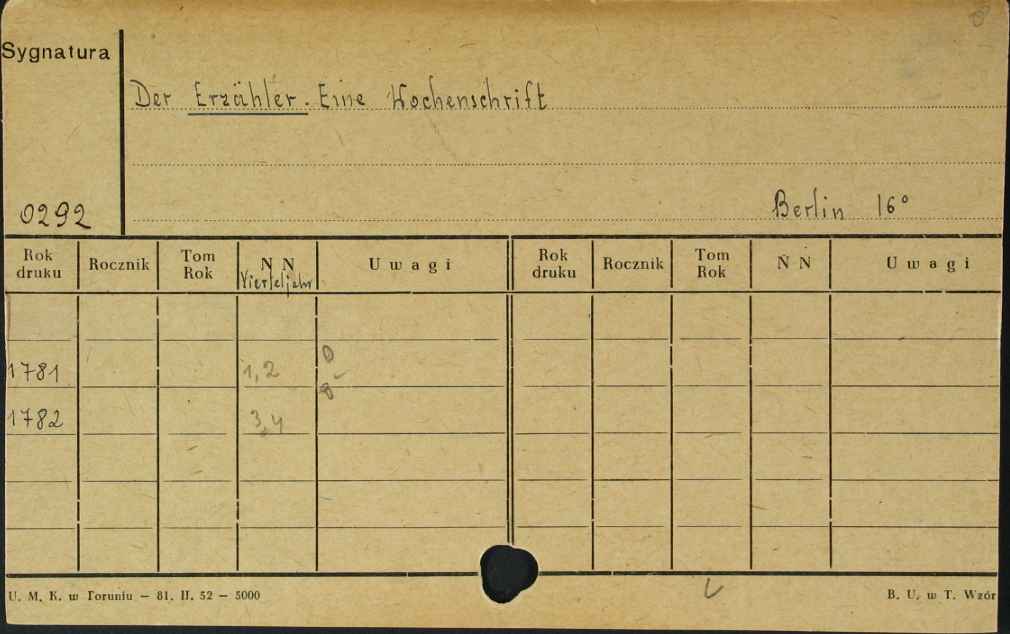 Sygnatura
Der Erzähler. Eine Wochenschrift
0292
Berlin 16°
Rok druku Rocznik Tom Rok N N Vierteljahr Uwagi Rok druku Rocznik Tom Rok N N Uwagi
1781 1,2
1782 3,4
U. M. K. w Toruniu — 81. II. 52 — 5000
B. U. w T. Wzór